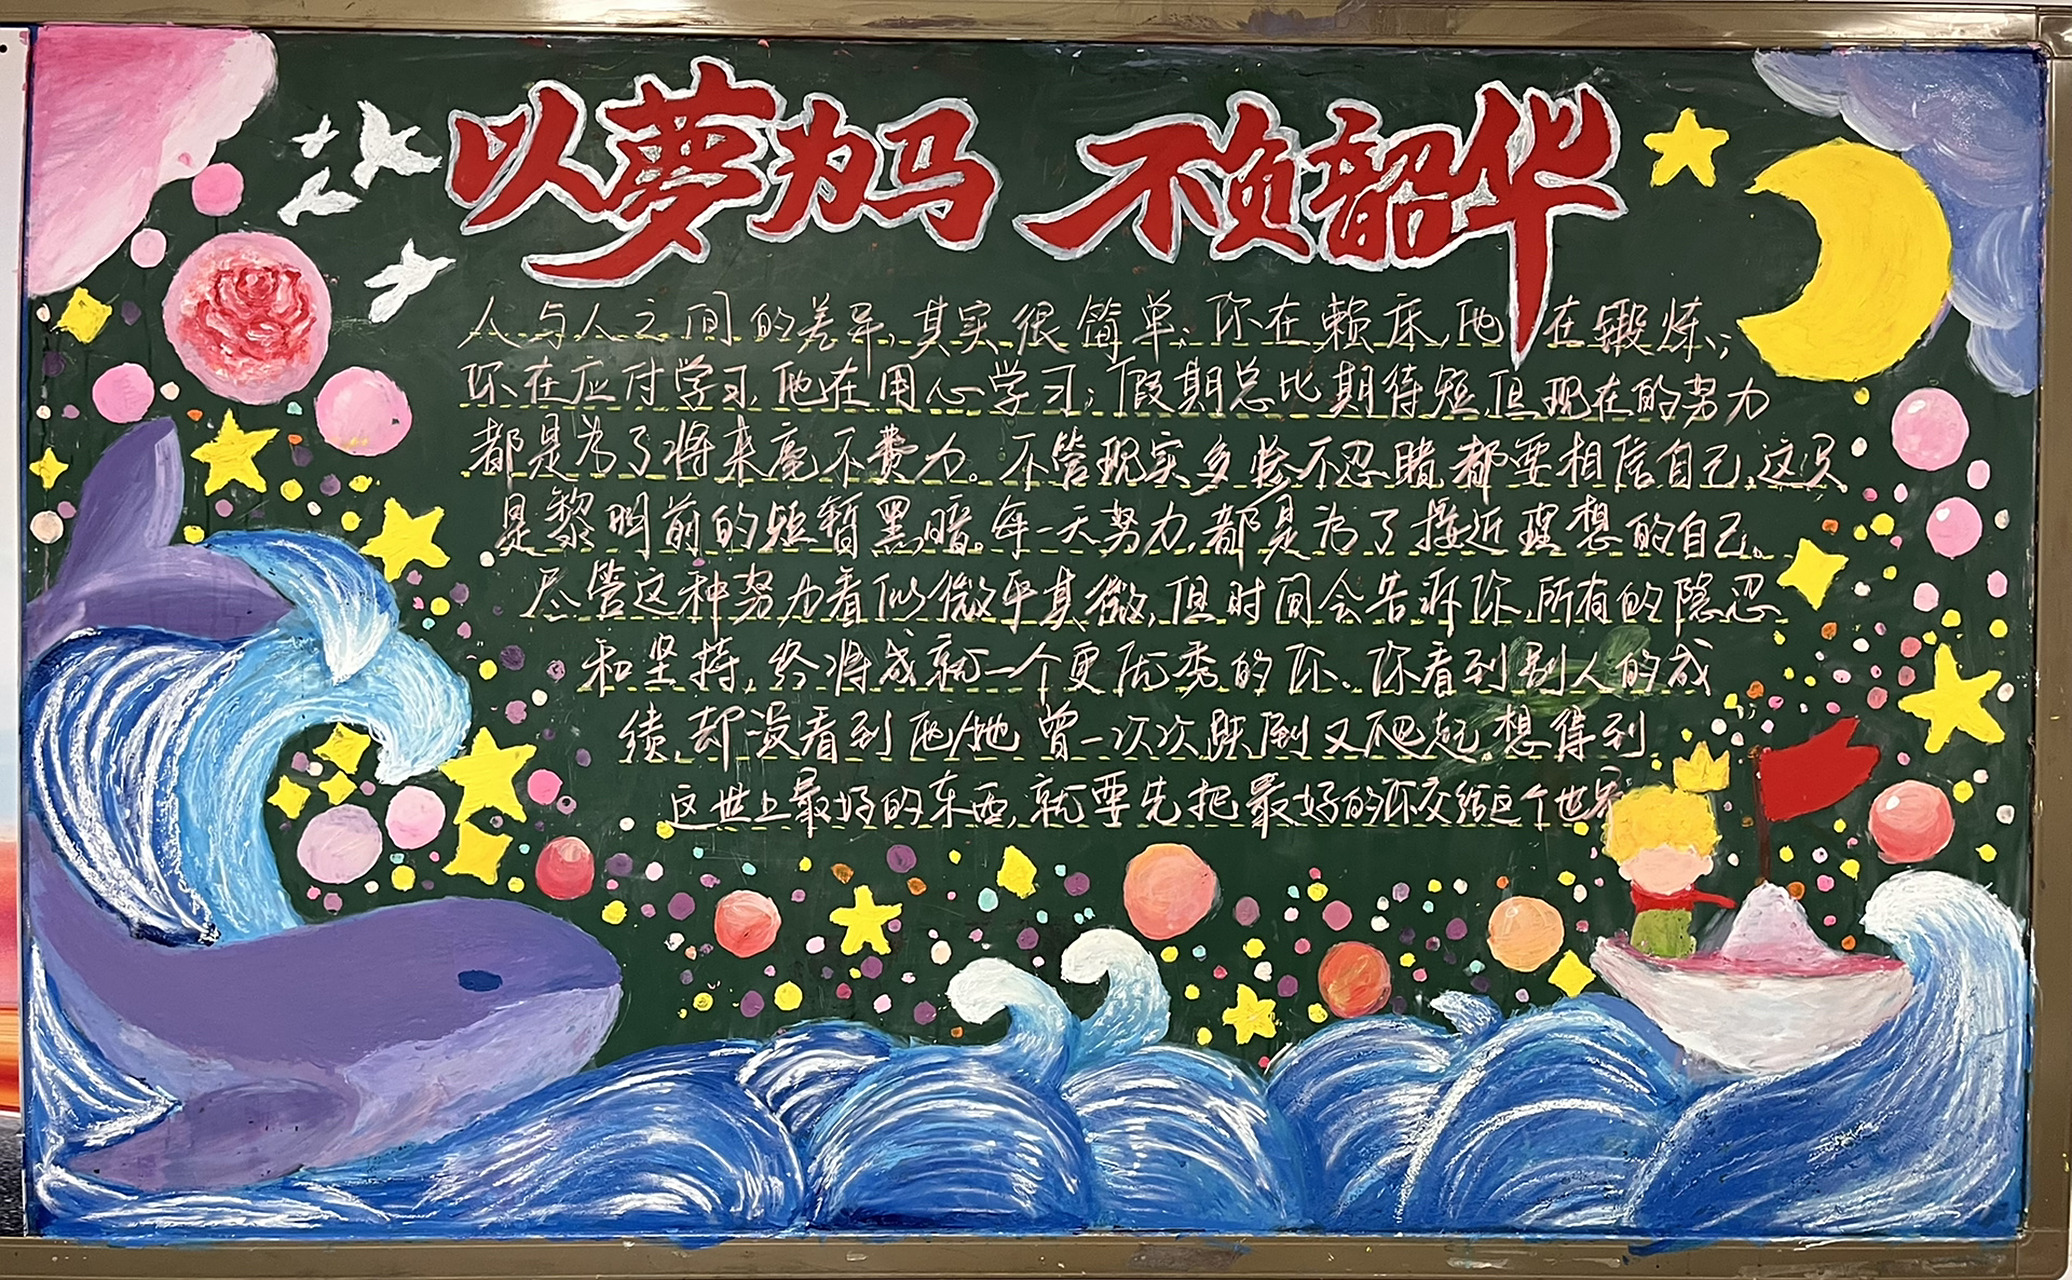 以夢为马 不负韶华
人与人之间的差异,其实很简单:你在赖床,他在锻炼;
你在应付学习,他在用心学习;假期总比期待短,但现在的努力
都是为了将来毫不费力。不管现实多惨不忍睹,都要相信自己,这只
是黎明前的短暂黑暗。每一天努力,都是为了接近理想的自己。
尽管这种努力看似微乎其微,但时间会告诉你,所有的隐忍
和坚持,终将成就一个更优秀的你。你看到别人的成
绩,却没看到他/她曾一次次跌倒又爬起。想得到
这世上最好的东西,就要先把最好的你交给这个世界